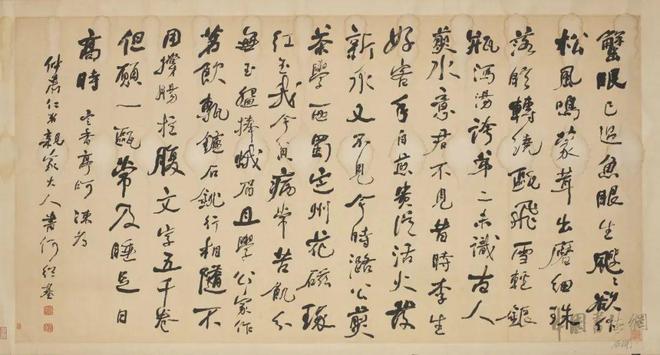 蟹眼已過魚眼生颼〻欲作
松風鳴蒙茸出磨細珠
落眩轉繞甌飛雪輕銀
瓶瀉湯誇第二未識古人
煎水意君不見昔時李生
好客手自煎貴從活火發
新泉又不見今時潞公煎
茶學西蜀定州花磁琢
紅玉我今貧病常苦飢分
無玉盌捧蛾眉且學公家作
茗飲甎鑪石銚行相隨不
用撐腸拄腹文字五千卷
但願一甌常及睡足日
高時
仁弟親家大人書何紹基